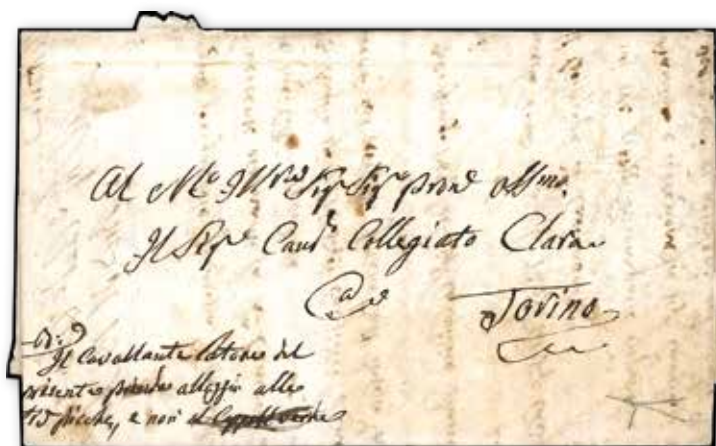 Al M.to Ill.re Sig.r Sig.r pron.e oss.mo
Il Sig.r Caus.o Collegiato Clara
Torino
Il Cavallante latore del
presente prende alloggio alle
picche, e non al